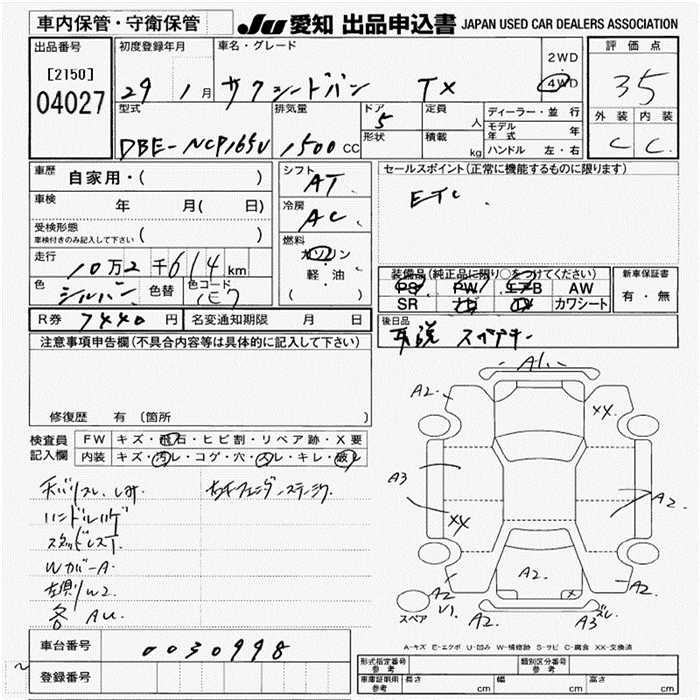 車内保管・守衛保管
JU 愛知 出品申込書 JAPAN USED CAR DEALERS ASSOCIATION
出品番号
[2150]
04027
初度登録年月
29 1月
車名・グレード
サクシードバン TX
2WD
4WD
評価点
35
外装 内装
C C
型式
DBE-NCP165V
排気量
1500 CC
ドア
5
形状
定員
人
積載
kg
ディーラー・並行
モデル年式 年
ハンドル 左・右
車歴
自家用・( )
車検
年 月( 日)
受検形態
車検付きのみ記入して下さい ( )
走行
10万2千614km
色
シルバー
色替
色コード
R券 7440円
名変通知期限 月 日
シフト
AT
冷房
AC
燃料
ガソリン
軽・油
( )
セールスポイント(正常に機能するものに限ります)
ETC
装備品(純正品に限り○をつけてください)
PS PW エアB AW
SR ナビ TV カワシート
新車保証書
有・無
後日品
取説 スペアキー
注意事項申告欄(不具合内容等は具体的に記入して下さい)
修復歴 有 (箇所
検査員記入欄
FW キズ・飛石・ヒビ割・リペア跡・X要
内装 キズ・汚レ・コゲ・穴・スレ・キレ・破レ
天バリスレ、しみ
ハンドルハゲ
スタッドレス
Wカバ-A
左側U2
各AU
A1
A2
XX
A3
XX
A2
A2
A2
V1
A2
A2
A3 ズレ
スペア
A-キズ E-エクボ U-凹み W-補修跡 S-サビ C-腐食 XX-交換済
車台番号
0030998
登録番号
型式指定番号 参考
類別区分番号 参考
車庫証明用 参考
長さ cm
幅 cm
高さ cm